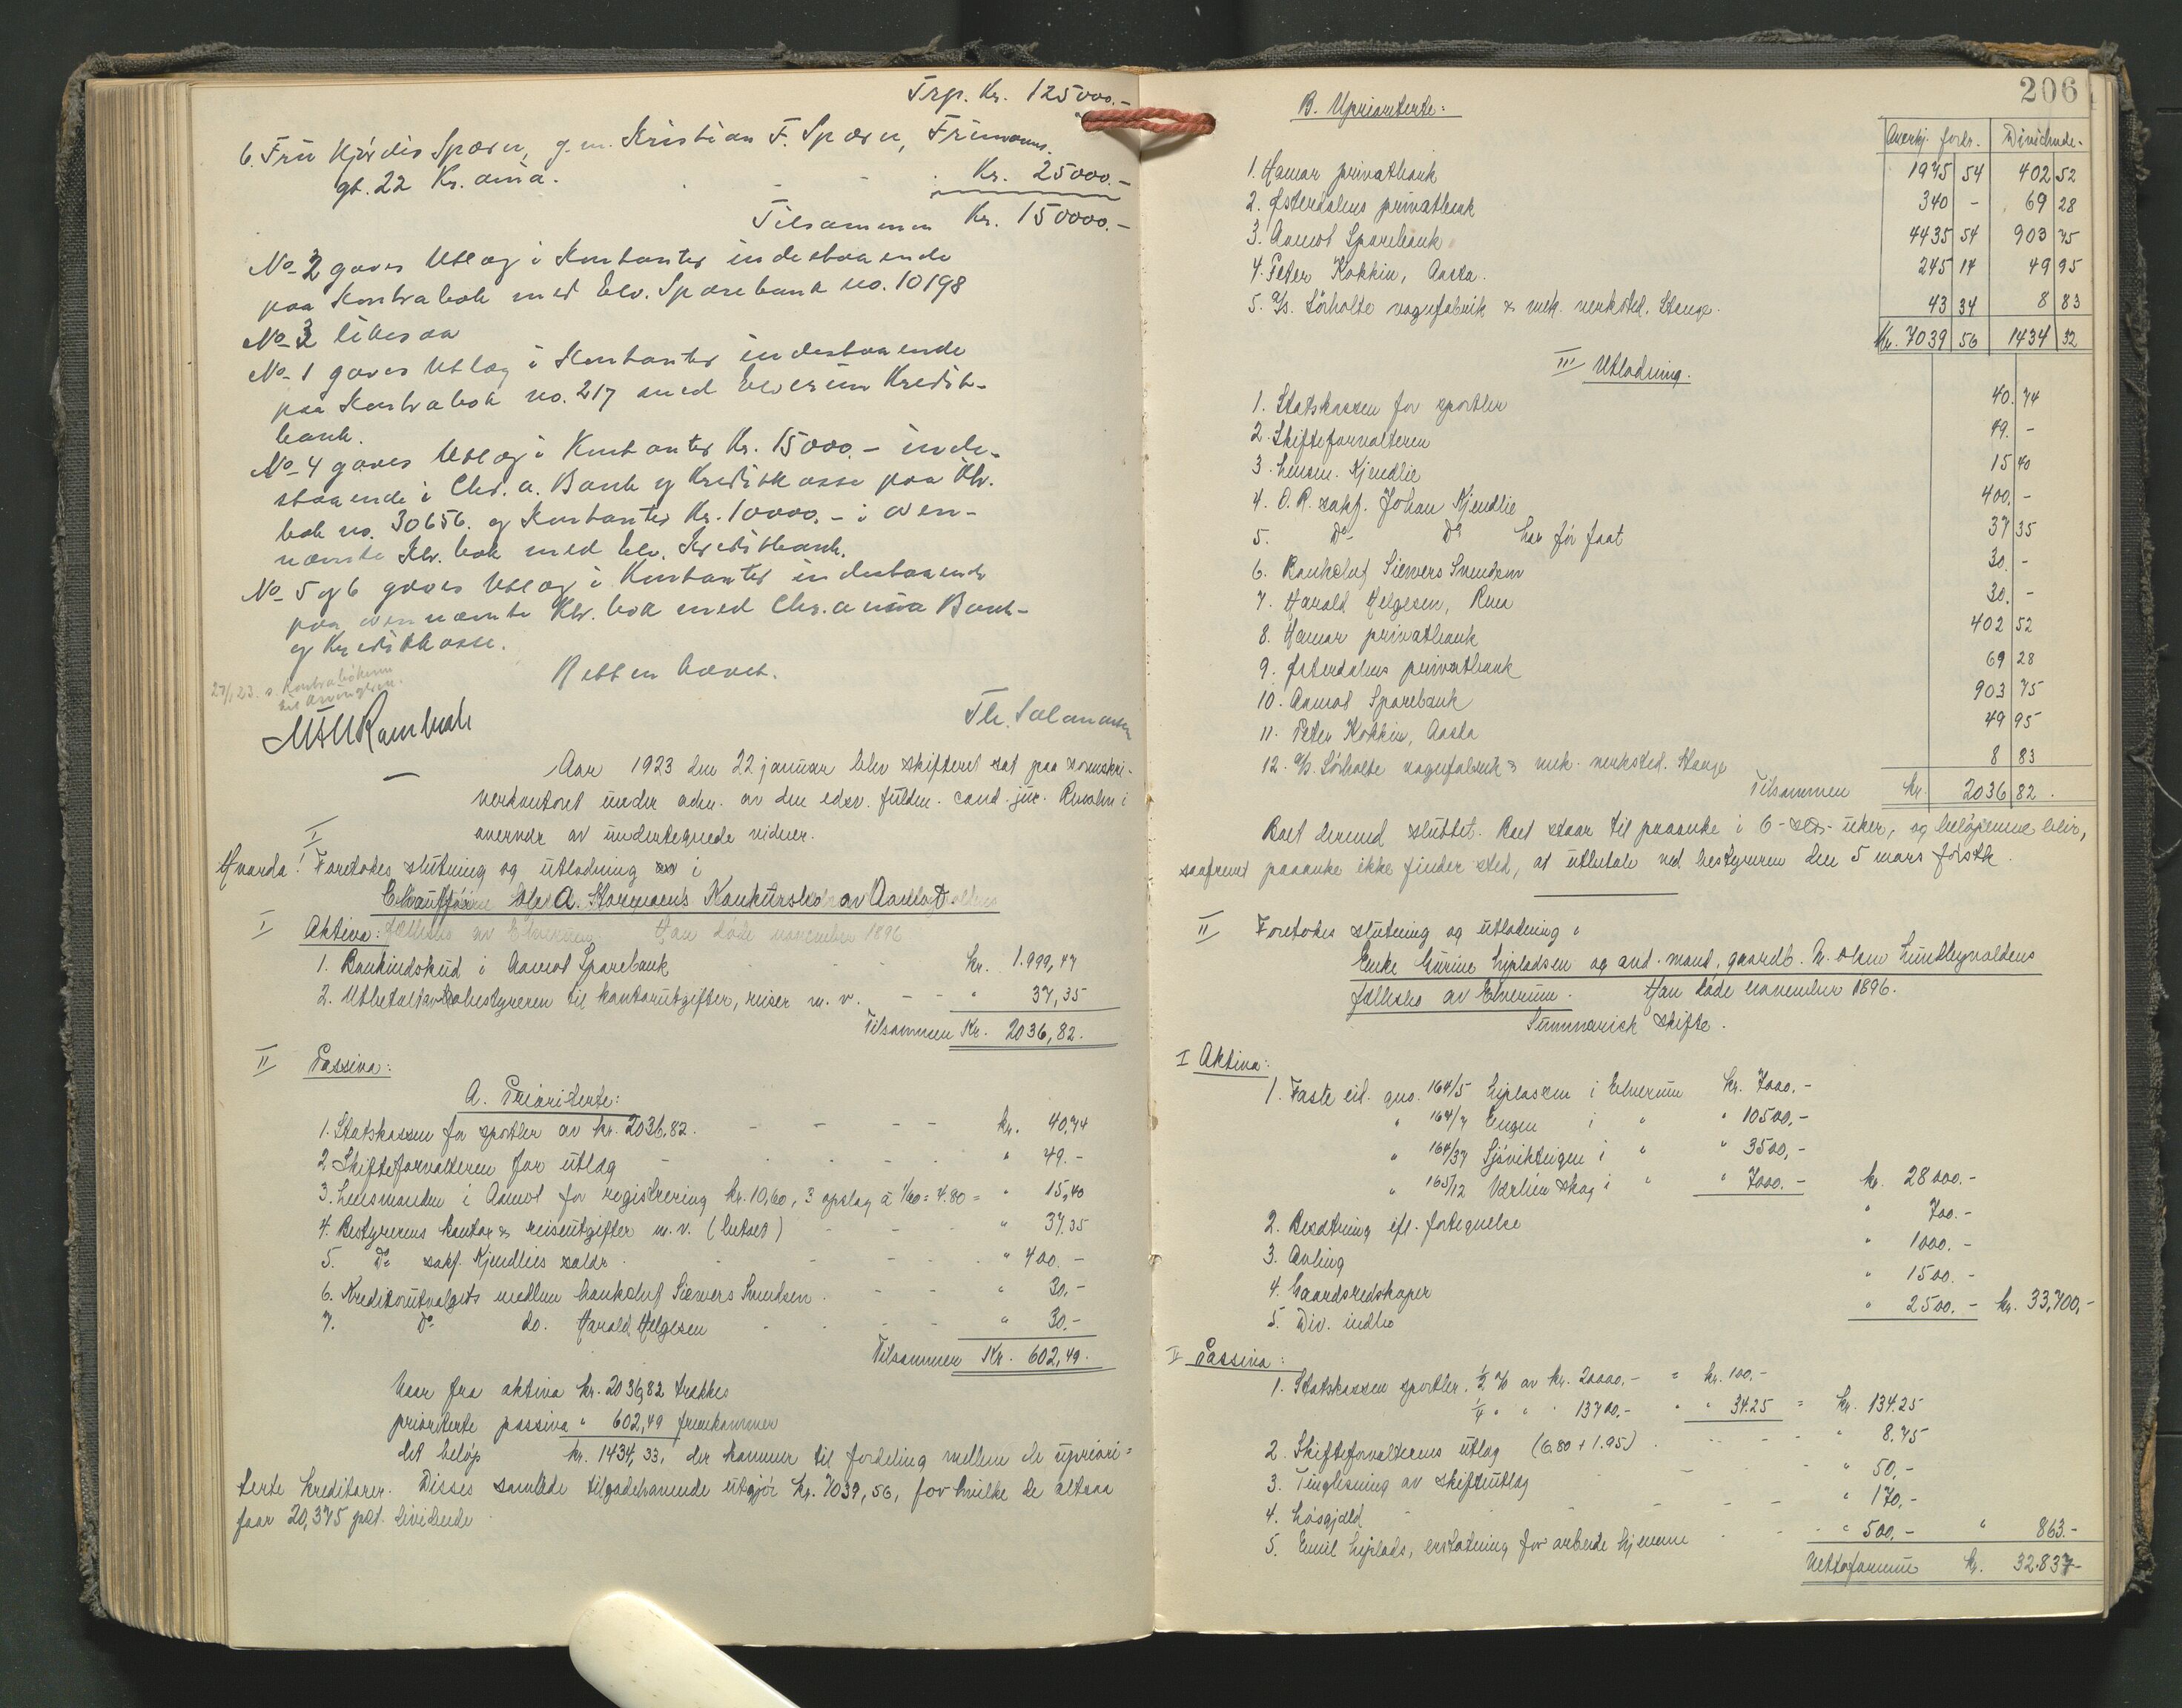 Trsp. Kr. 125000.-
6. Fru Hjördis Spæren, g.m. Kristian F. Spæren, Frimanns
gt. 22 Kr.ania. Kr. 25000.-
Tilsammen Kr. 150000.-
No 2 gaves Utlæg i Kontanter indestaaende
paa Kontrabok med Elv. Sparebank no. 10198
No 3 likesaa
No 1 gaves Utlæg i Kontanter indestaaende
paa Kontrabok no. 217 med Elverum Kredit-
bank.
No 4 gaves Utlæg i Kontanter Kr. 15000.- inde-
staaende i Chr.a. Bank og Kreditkasse paa Ktr.
bok no. 30656. og Kontanter Kr. 10000.- i oven-
nævnte Ktr. bok med Elv. Kreditbank.
No 5 og 6 gaves Utlæg i Kontanter indestaaende
paa ovennævnte Ktr. bok med Chr.ania Bank-
og Kreditkasse.
Retten hævet.
27/1 23. s. Kontrabökerne
til arvingerne.
Aar 1923 den 22 januar blev skifteret sat paa sorenskri-
verkontoret under adm. av den edsv. fuldm. cand. jur. Revalen i
overvær av undertegnede vidner.
I
Hvorda! Foretokes slutning og utlodning i
A. Konkursbo av Aamot
I Aktiva: fællesbo av Elverum. Han døde november 1896
1. Bankindskud i Aamot Sparebank - - - kr. 1.999,47
2. Utbetalt av bobestyreren til kontorutgifter, reiser m. v. - - " 37,35
Tilsammen Kr. 2036,82.
II Passiva:
A. Prioriterte:
1. Statskassen for sportler av kr. 2036,82. - - - - kr. 40,74
2 Skifteforvalteren for utlæg - - - - - " 49.-
3. Lensmanden i Aamot for registrering kr. 10,60, 3 opslag à 1/60 = 4.80 = " 15,40
4. Bestyrerens kontor & reiseutgifter m. v. (hævet) - - - " 37.35
5. Do sakf. Kjendlies salær - - - - " 400.-
6. Kreditorutvalgets medlem banksjef Siewers Svendsen - - - " 30,-
7. Do do. Harald Helgesen - - - - " 30.-
Tilsammen Kr. 602,49.
Naar fra aktiva kr. 2036,82 trækkes
prioriterte passiva " 602,49 fremkommer
det beløp kr. 1434,33, der kommer til fordeling mellem de upriori=
terte kreditorer. Disses samlede tilgodehavende utgjør kr. 7039,56, for hvilke de altsaa
faar 20,375 pct. dividende
206
B. Uprioriterte:
Anerkj. fordr. Dividende.
1. Hamar privatbank 1975 54 402 52
2. Østerdalens privatbank 340 - 69 28
3. Aamot Sparebank 4435 54 903 75
4. Peter Kokkin, Aasta. 245 14 49 95
5. A/s. Sörholte vognfabrik & mek. verksted. Stange. 43 34 8 83
Kr. 7039 56 1434 32
III Utlodning.
1. Statskassen for sportler 40. 74
2. Skifteforvalteren 49. -
3. Lensm. Kjendlie 15 40
4. O.R. sakf. Johan Kjendlie 400. -
5. Do Do har før faat 37 35
6. Banksjef Siewers Svendsen 30. -
7. Harald Helgesen, Rena 30. -
8. Hamar privatbank 402 52
9. Østerdalens privatbank 69 28
10. Aamot Sparebank 903 75
11. Peter Kokkin, Aasta 49 95
12. A/s. Sörholte vognfabrik & mek. verksted. Stange 8 83
Tilsammen kr. 2036 82.
Boet dermed sluttet. Boet staar til paaanke i 6 - seks - uker, og beløpene blir,
saafremt paaanke ikke finder sted, at utbetale ved bestyreren den 5 mars førstk.
II Foretokes slutning og utlodning i
Enke Gurine Lypladsen og avd. mand, gaardb. M. Olsen Lundbyvoldens
fællesbo av Elverum. Han døde november 1896.
Summarisk skifte.
I Aktiva:
1. Faste eid. gno. 164/5 Lyplassen i Elverum kr. 7000,-
" 164/7 Engen i " " 10500,-
" 164/37 Sjøvikteigen i " " 3500,-
" 165/12 Værlien skog i " " 7000.- kr. 28000.-
2. Besætning efl. fortegnelse " 700.-
3. Avling " 1000.-
4. Gaardsredskaper " 1500.-
5. Div. indbo " 2500.- kr. 33,700,-
II Passiva:
1. Statskassen sportler. 1/2 % av kr. 20000.- = kr. 100,-
1/4 " " " 13700,- " " 34.25 = kr. 134.25
2. Skifteforvalterens utlæg (6.80 + 1.95) - - - " 8.75
3. Tinglesning av skifteutlæg - - - " 50,-
4. Løsgjæld - - - - " 170,-
5. Emil Lyplads, erstatning for arbeide hjemme - - " 500,- " 863.-
Nettoformue kr. 32.837-